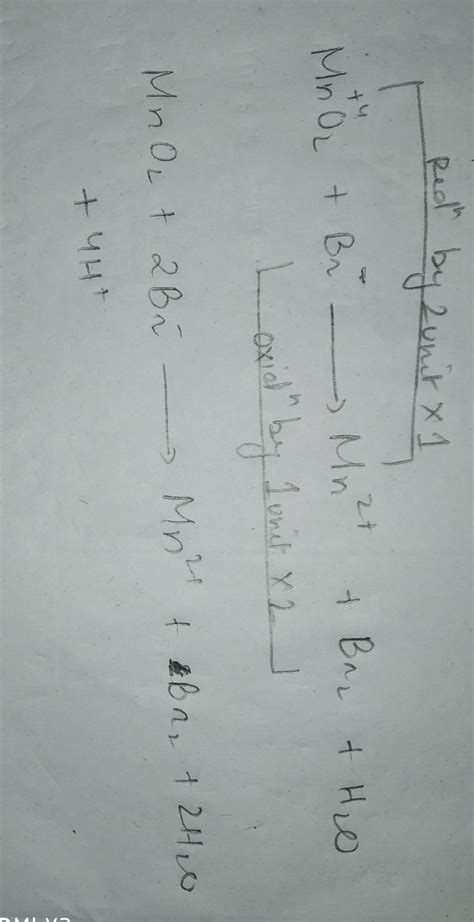 Redⁿ by 2 unit × 1
+4
MnO₂ + Br⁻ ⟶ Mn²⁺ + Br₂ + H₂O
oxidⁿ by 1 unit × 2
MnO₂ + 2Br⁻ ⟶ Mn²⁺ + Br₂ + 2H₂O
+ 4H⁺